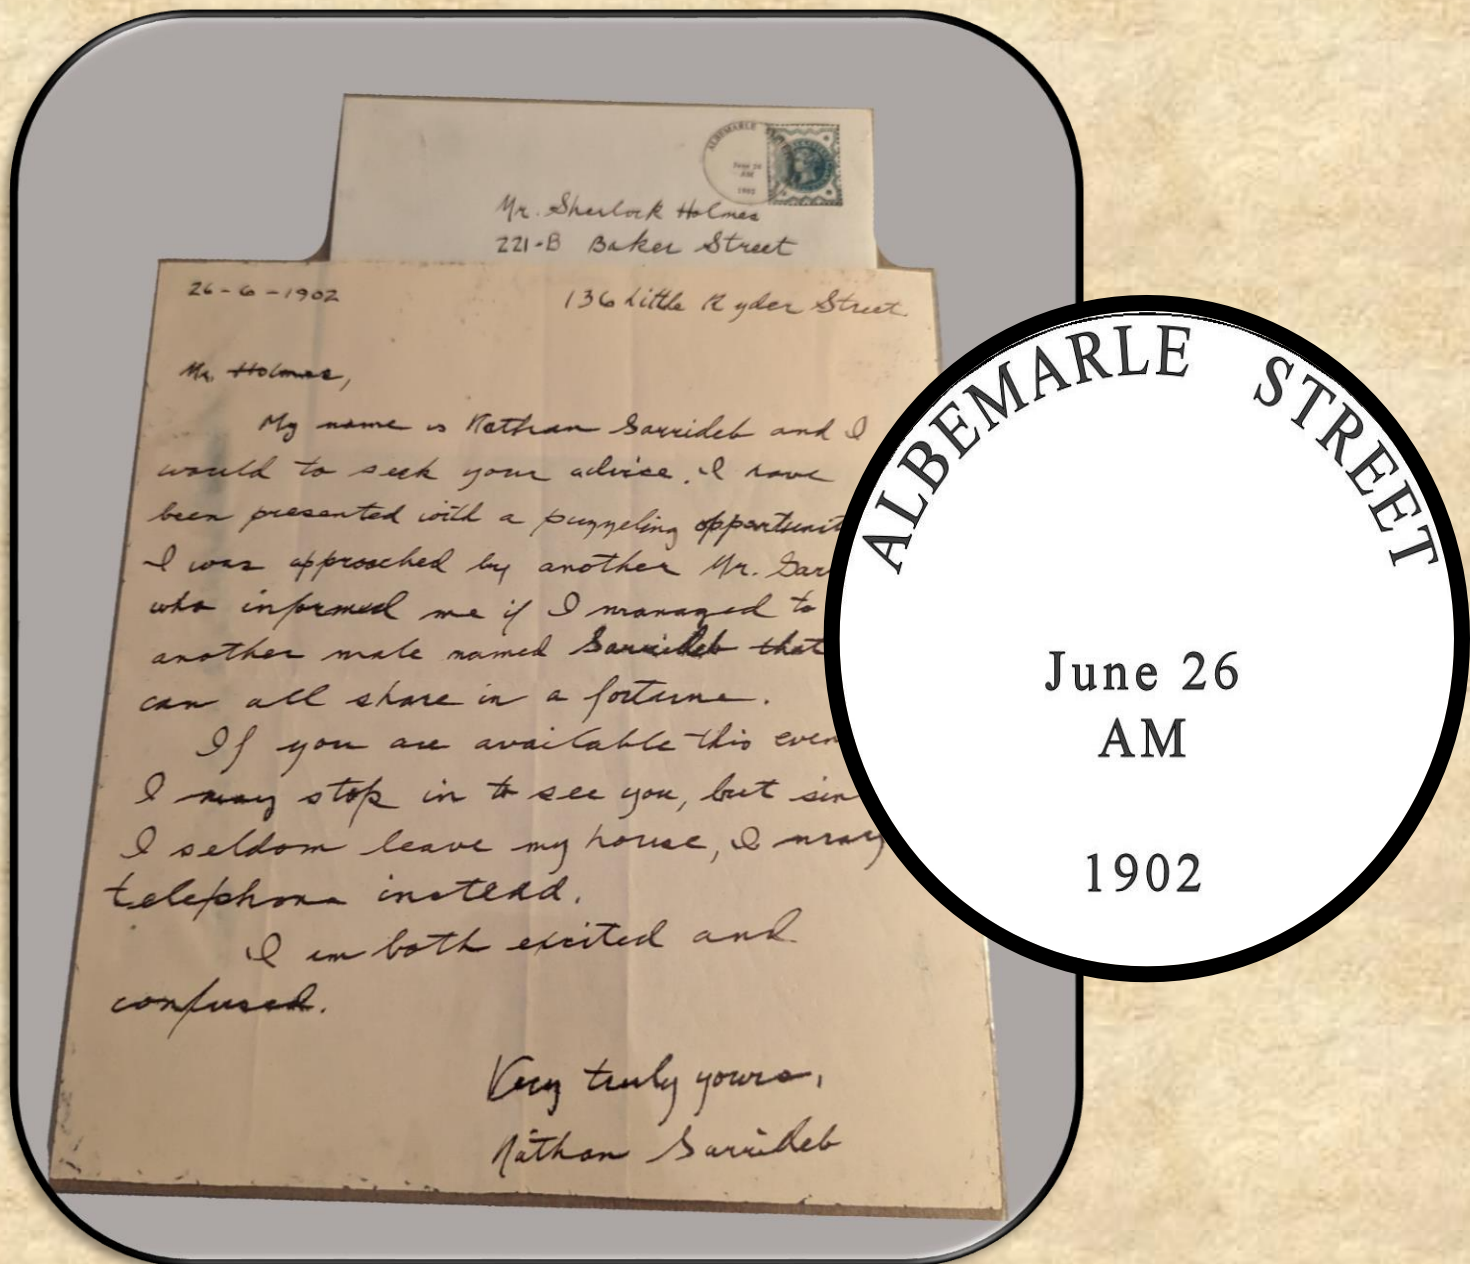 ALBEMARLE
June 26
AM
1902
Mr. Sherlock Holmes
221-B Baker Street
26-6-1902
136 Little Ryder Street
Mr. Holmes,
My name is Nathan Garrideb and I
would to seek your advise. I have
been presented with a puzzeling opportunit
I was approached by another Mr. Gar
who informed me if I managed to
another male named Garrideb that
can all share in a fortune.
If you are available this even
I may stop in to see you, but sin
I seldom leave my house, I may
telephone instead.
I am both excited and
confused.
Very truly yours,
Nathan Garrideb
ALBEMARLE STREET
June 26
AM
1902